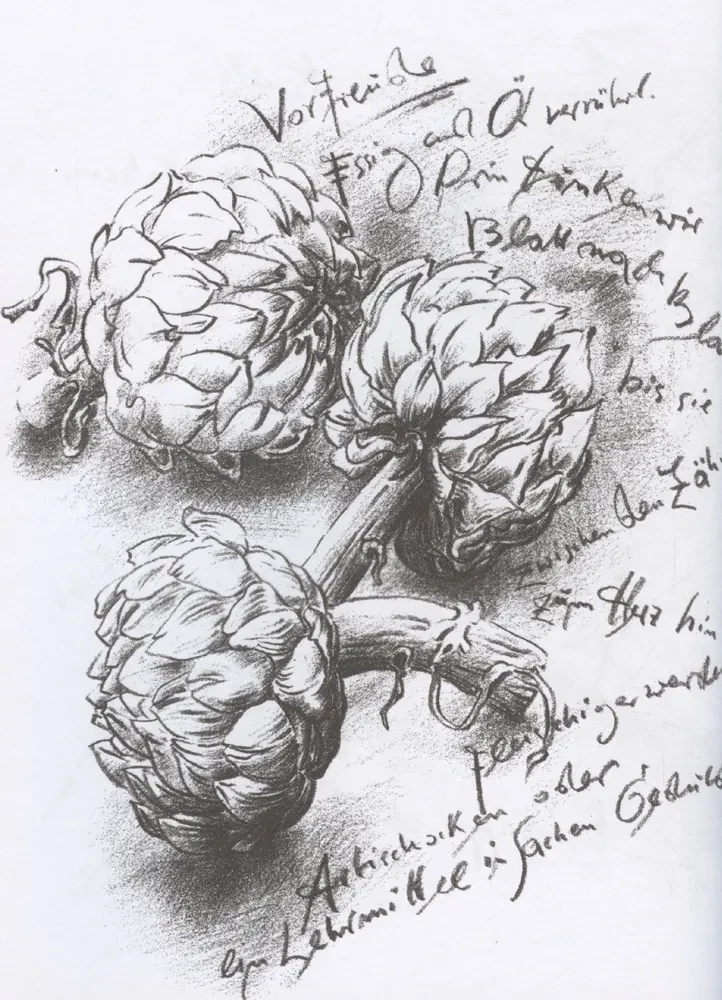 Vorfreude
Essig und Öl verrührt.
Drin tunken wir
Blatt nach
Bla
bis sie
zwischen den Zäh
zum Herz hin
fleischiger werde
Artischocken oder
ein Lehrmittel in Sachen Geduld